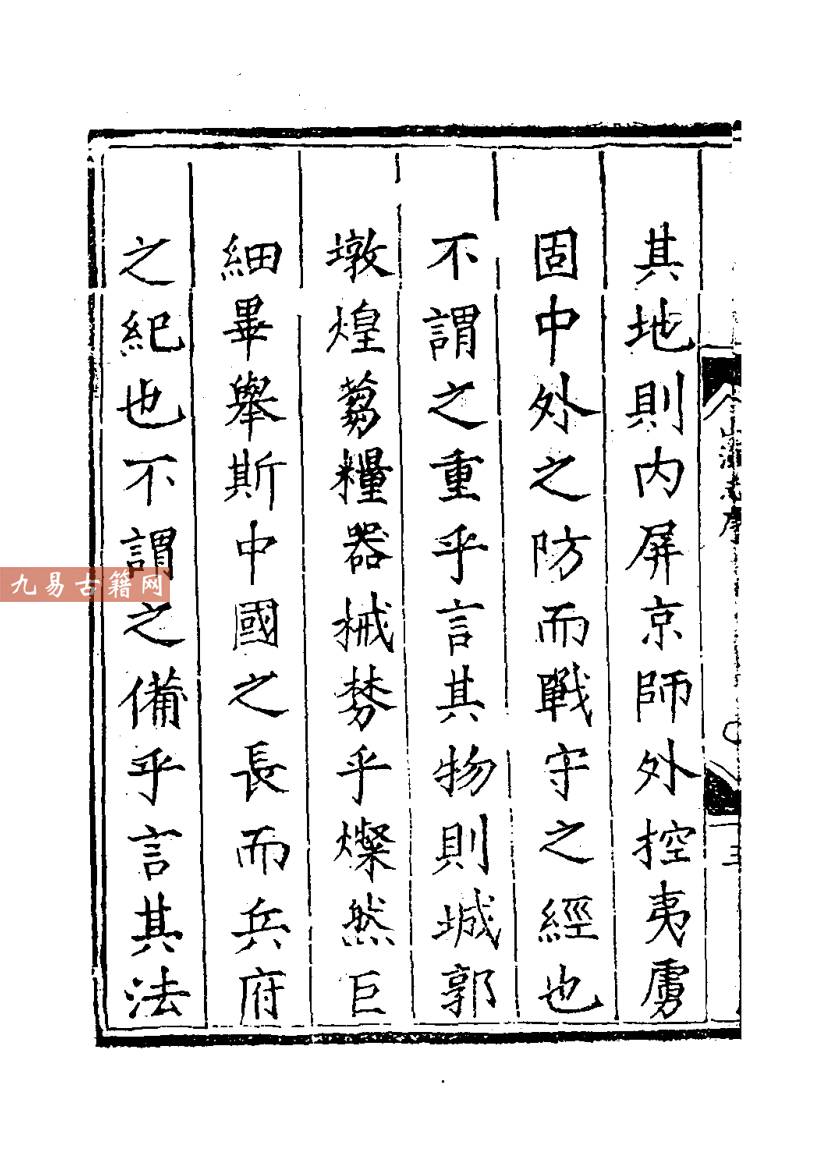 其地則内屏京師外控夷虜
固中外之防而戰守之經也
不謂之重乎言其物則城郭
墩煌蒭糧器械棼乎燦然巨
細畢舉斯中國之長而兵府
之紀也不謂之備乎言其法
九易古籍网